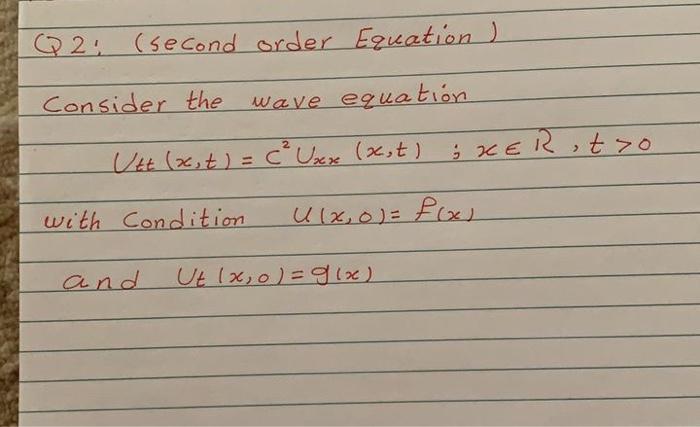 Q2: (second order Equation)
Consider the wave equation
Utt (x,t) = C² Uxx (x,t) ; x ∈ R , t > 0
with Condition U(x,0) = f(x)
and Ut (x,0) = g(x)